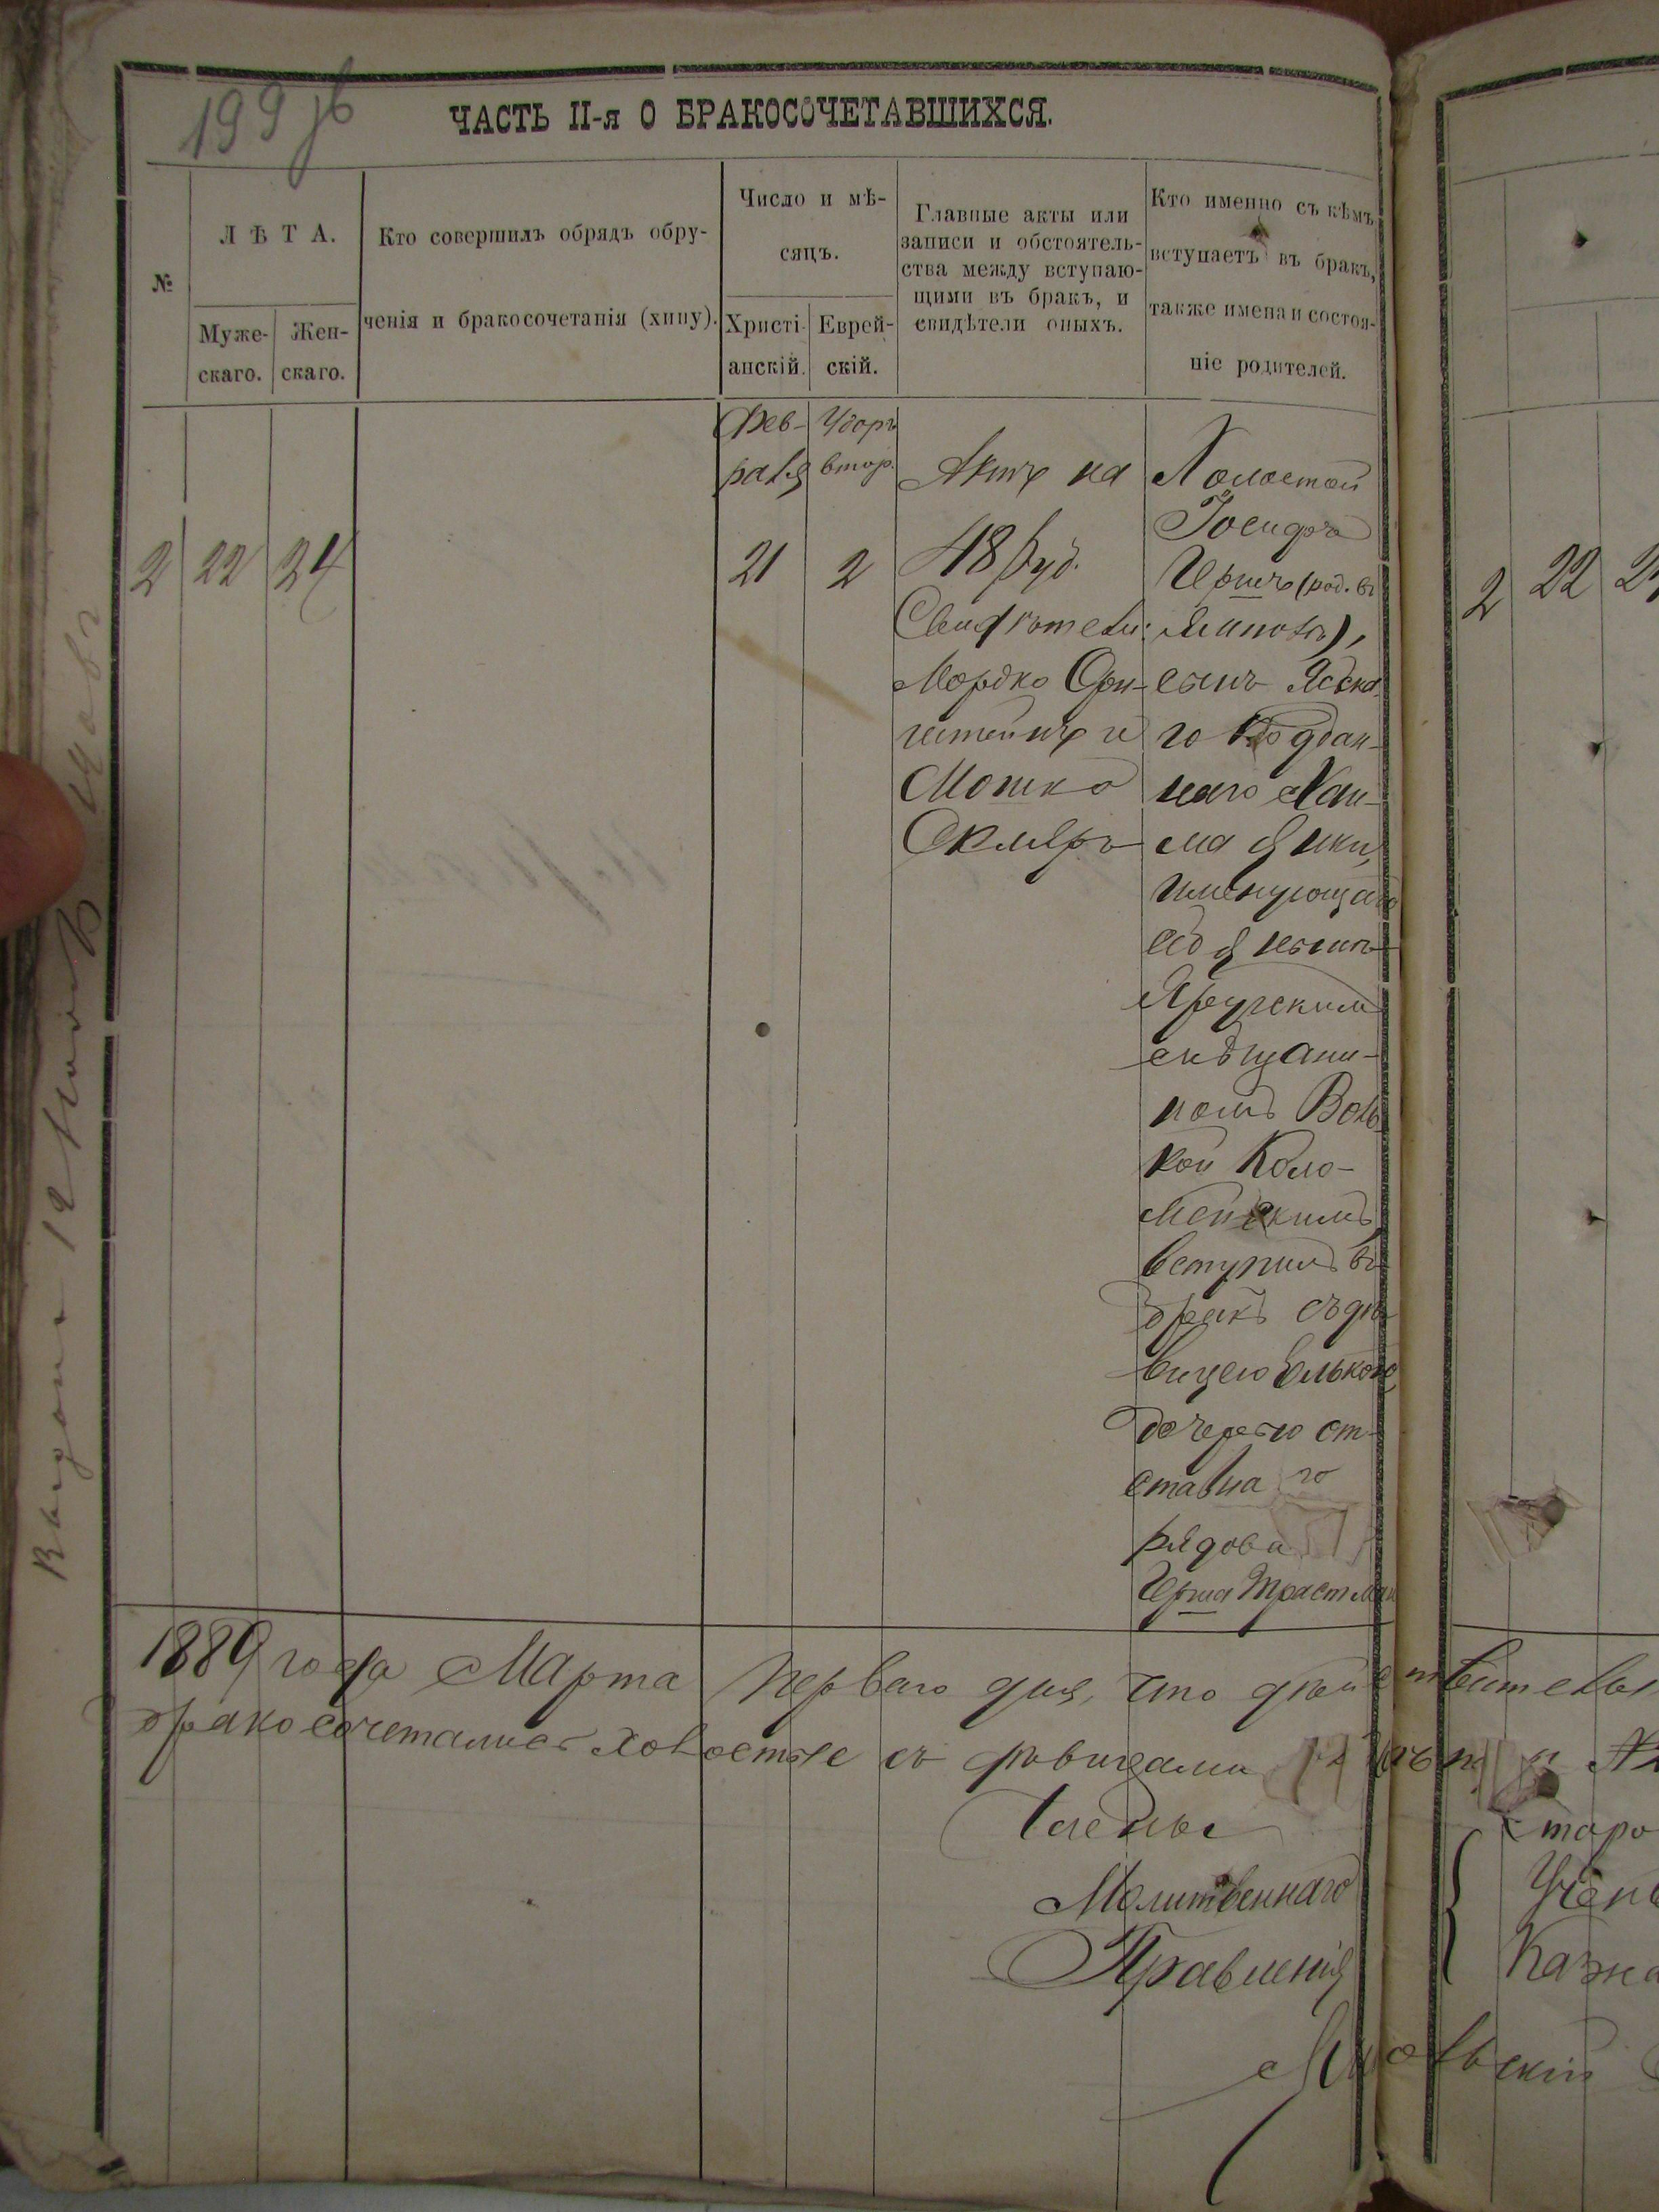 199 об
ЧАСТЬ II-я О БРАКОСОЧЕТАВШИХСЯ.
№
ЛѢТА.
Муже-
скаго.
Жен-
скаго.
Кто совершилъ обрядъ обру-
ченія и бракосочетанія (хипу).
Число и мѣ-
сяцъ.
Христі-
анскій.
Еврей-
скій.
Главные акты или
записи и обстоятель-
ства между вступаю-
щими въ бракъ, и
свидѣтели оныхъ.
Кто именно съ кѣмъ
вступаетъ въ бракъ,
также имена и состоя-
ніе родителей.
2
22
24
Фев-
раля
21
втор.
2
Актъ на
48 руб.
Свидѣтели:
Мордко
и
Мошко
Скляръ
Холостой
Іосифъ
Гершъ (род. въ
Ямполѣ),
сынъ
го Поддан-
наго Хаи-
ма
именующаго
себя нынѣ
Яругскимъ
мѣщани-
номъ Воль-
кой Коло-
мейскимъ
вступилъ въ
бракъ съ дѣ-
вицею Элькою,
дочерью от-
ставнаго
рядова
Герша Трастман
1889 года Марта перваго дня, что дѣйствительн
бракосочетались холостые съ дѣвицами
Члены
Молитвеннаго
Правленія
2 22
Старо
Учен
Казна